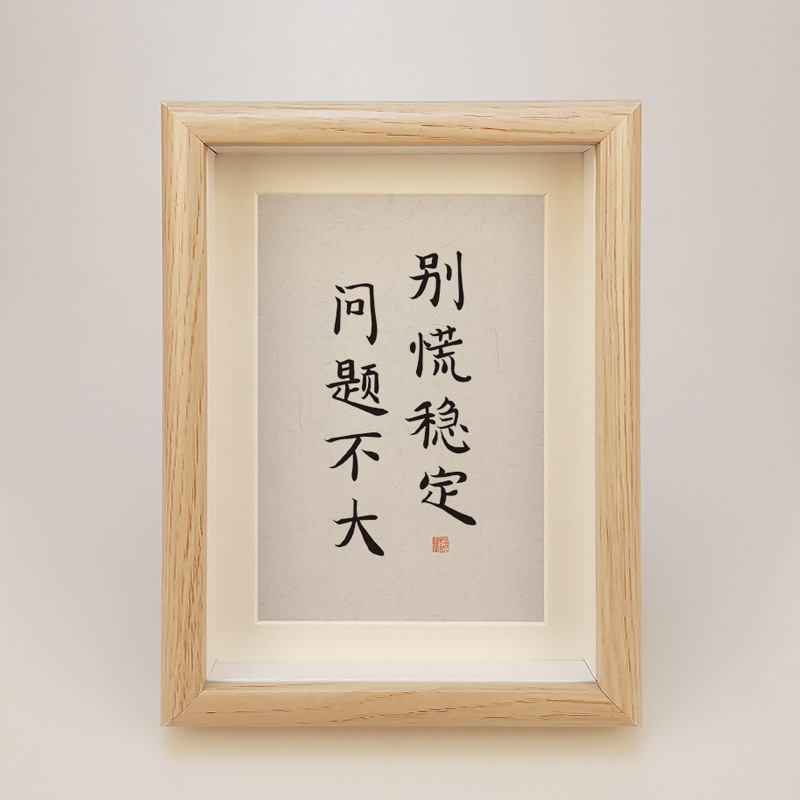 别慌稳定
问题不大